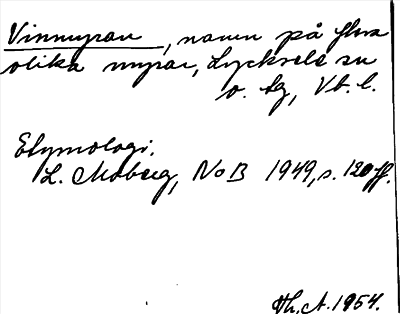 Vinmyran, namn på flera
olika myrar, Lycksele sn
o. tg, Vb. l.
Etymologi.
L. Moberg, NoB 1949, s. 120 ff.
Th, A. 1954.